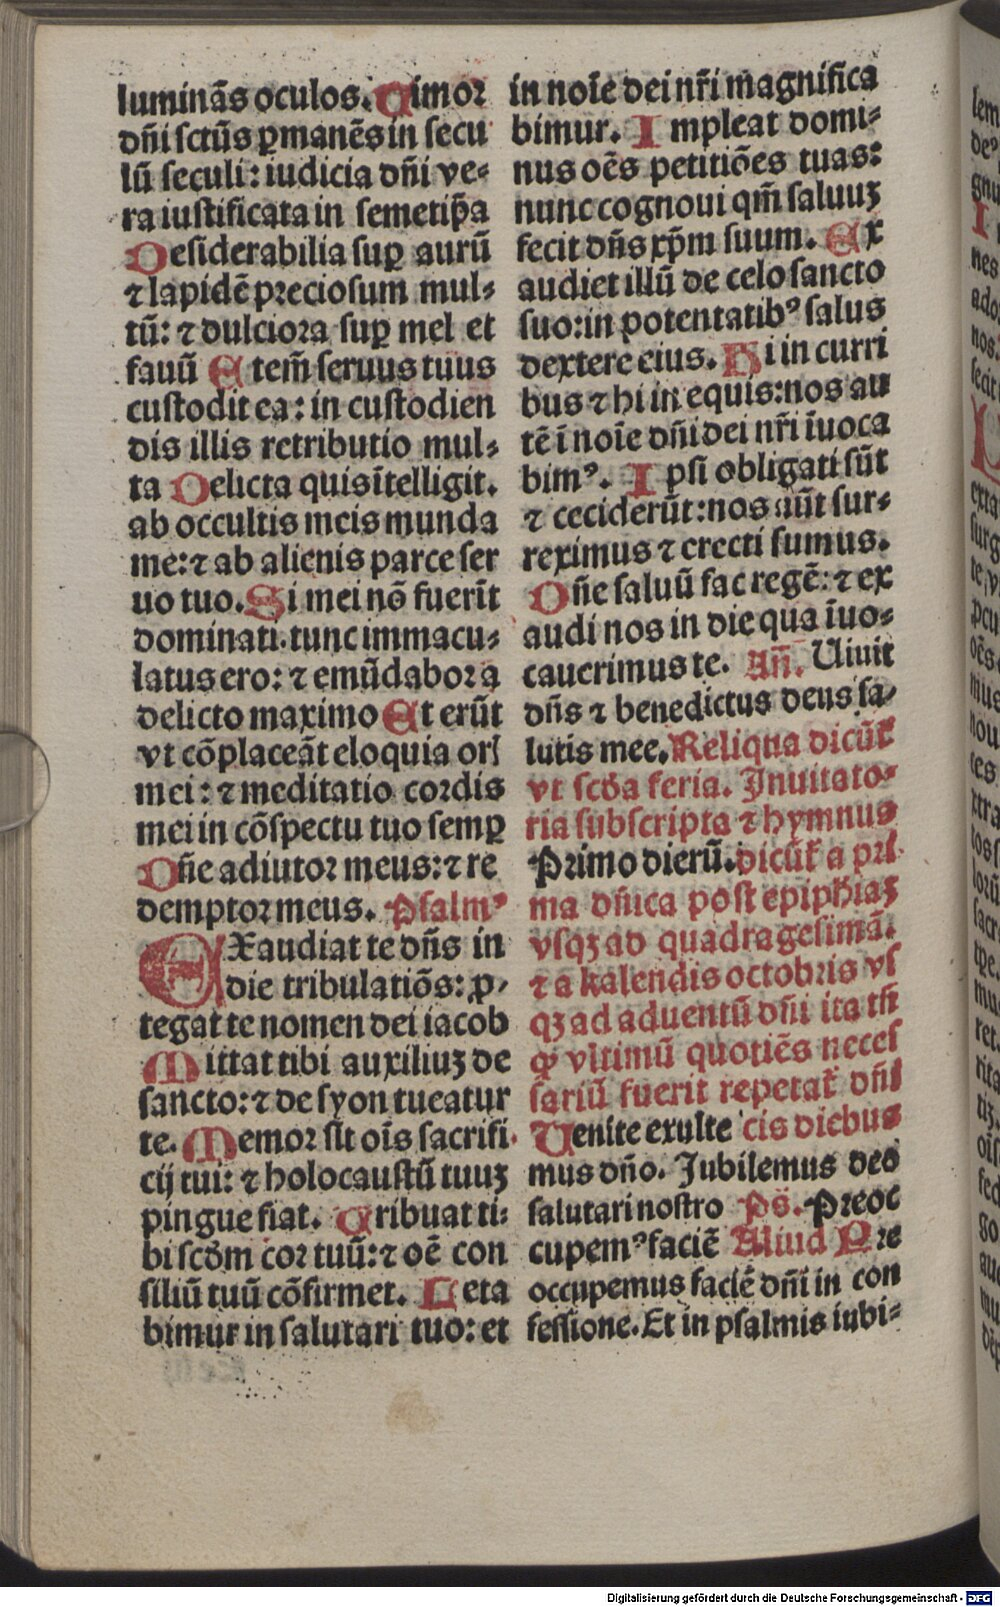 luminãs oculos. Timor
dñi sctũs ꝑmanẽs in secu
lũ seculi: iudicia dñi ve⸗
ra iustificata in semetip̃a
Desiderabilia suꝑ aurũ
⁊ lapidẽ preciosum mul⸗
tũ: ⁊ dulciora suꝑ mel et
fauũ Etem̃ seruus tuus
custodit ea: in custodien
dis illis retributio mul⸗
ta Delicta quis ĩtelligit.
ab occultis meis munda
me: ⁊ ab alienis parce ser
uo tuo. Si mei nõ fuerĩt
dominati. tunc immacu⸗
latus ero: ⁊ emũdabor a
delicto maximo Et erũt
vt cõplaceãt eloquia oris
mei: ⁊ meditatio cordis
mei in cõspectu tuo semꝑ
Dñe adiutor meus: ⁊ re
demptor meus. Psalmꝰ
EXaudiat te dñs in
die tribulatiõs: ꝓ⸗
tegat te nomen dei iacob
Mittat tibi auxiliuʒ de
sancto: ⁊ de syon tueatur
te. Memor sit oĩs sacrifi⸗
cij tui: ⁊ holocaustũ tuuʒ
pingue fiat. Tribuat ti⸗
bi scd̃m cor tuũ: ⁊ oẽ con
siliũ tuũ cõfirmet. Leta
bimur in salutari tuo: et
in noĩe dei nr̃i magnifica
bimur. Impleat domi⸗
nus oẽs petitiões tuas:
nunc cognoui qm̃ saluuʒ
fecit dñs xp̃m suum. Ex
audiet illũ de celo sancto
suo: in potentatibꝰ salus
dextere eius. Hi in curri
bus ⁊ hi in equis: nos au
tẽ ĩ noĩe dñi dei nr̃i ĩuoca
bimꝰ. Ipsi obligati sũt
⁊ ceciderũt: nos aũt sur⸗
reximus ⁊ erecti sumus.
Dñe saluũ fac regẽ: ⁊ ex
audi nos in die qua ĩuo⸗
cauerimus te. Añ. Uiuit
dñs ⁊ benedictus deus sa⸗
lutis mee. Reliqua dicũt᷑
vt scd̃a feria. Inuitato⸗
ria subscripta ⁊ hymnus
Primo dierũ. dicũt᷑ a pri
ma dñica post epiph̃iaʒ
vsqʒ ad quadragesimã.
⁊ a kalendis octobris vs
qʒ ad aduentũ dñi ita tñ
ꝙ vltimũ quotiẽs neces
sariũ fuerit repetat᷑ dñi
Uenite exulte cis diebus
mus dño. Jubilemus deo
salutari nostro Ps̃. Preoc
cupemꝰ faciẽ Aliud Pre
occupemus faciẽ dñi in con
fessione. Et in psalmis iubi⸗
Digitalisierung gefördert durch die Deutsche Forschungsgemeinschaft - DFG